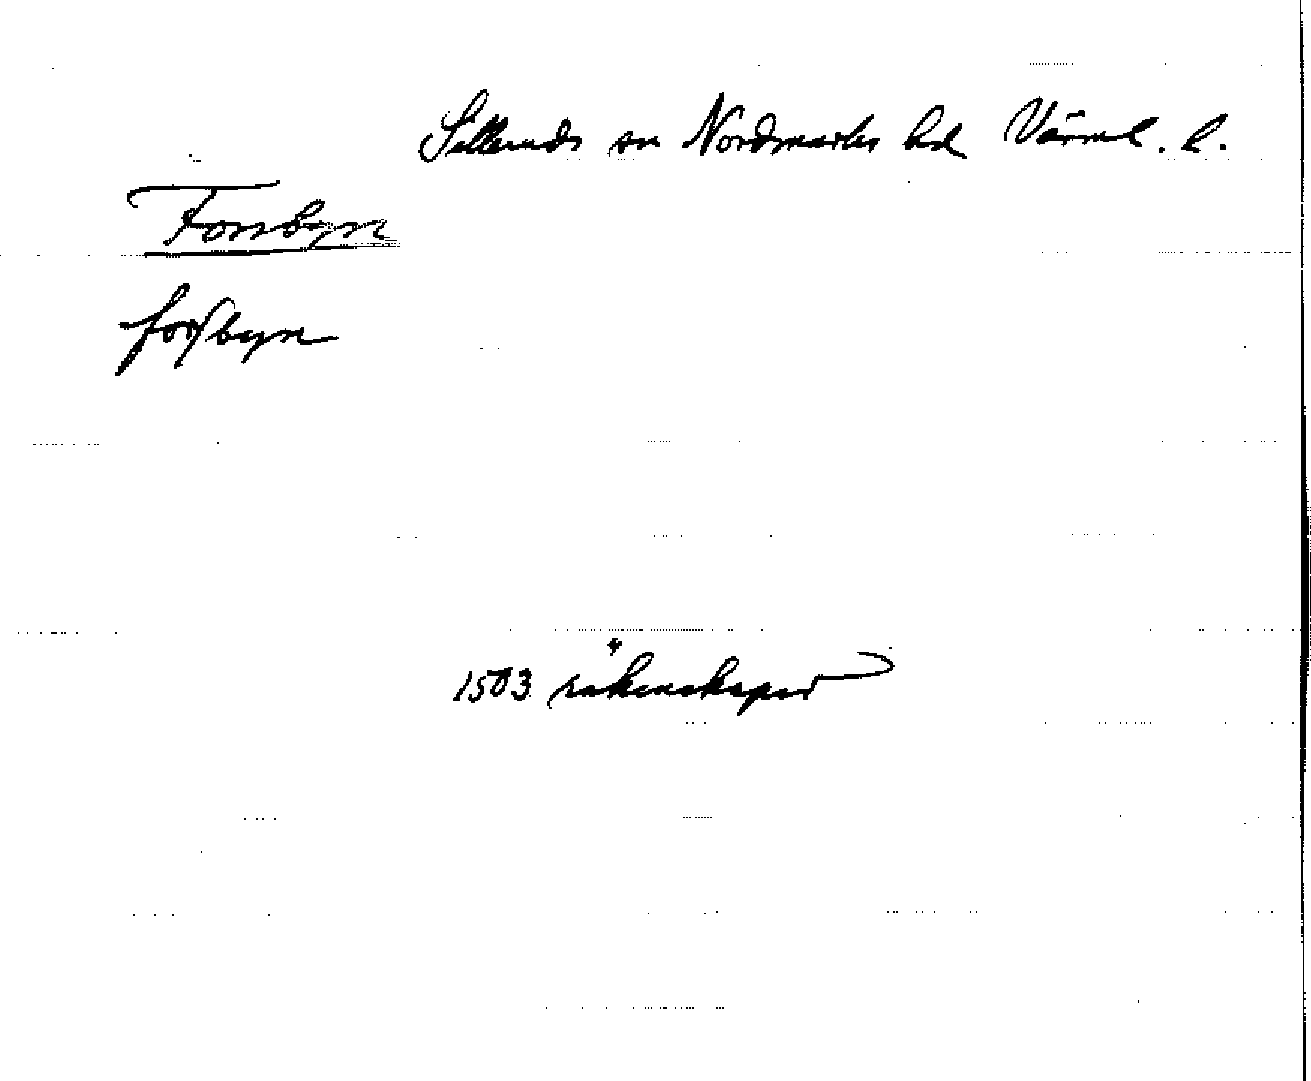 Silleruds sn Nordmarks hd Värml. l.
Forsbyn
forßbyn
1503 räkenskaper